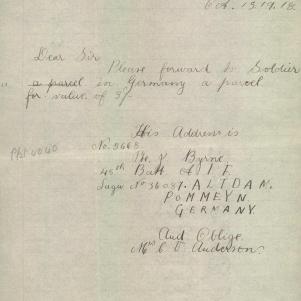 Oct. 13.19.18
Dear Sir
Please forward to Soldier
a parcel in Germany a parcel
for value of 3/-
His Address is
No. 3668
Th. J. Byrne
45th Batt of I F
Lager No 36087. ALTDAN.
POMMEYN.
GERMANY.
And Oblige
Mrs C E Anderson.